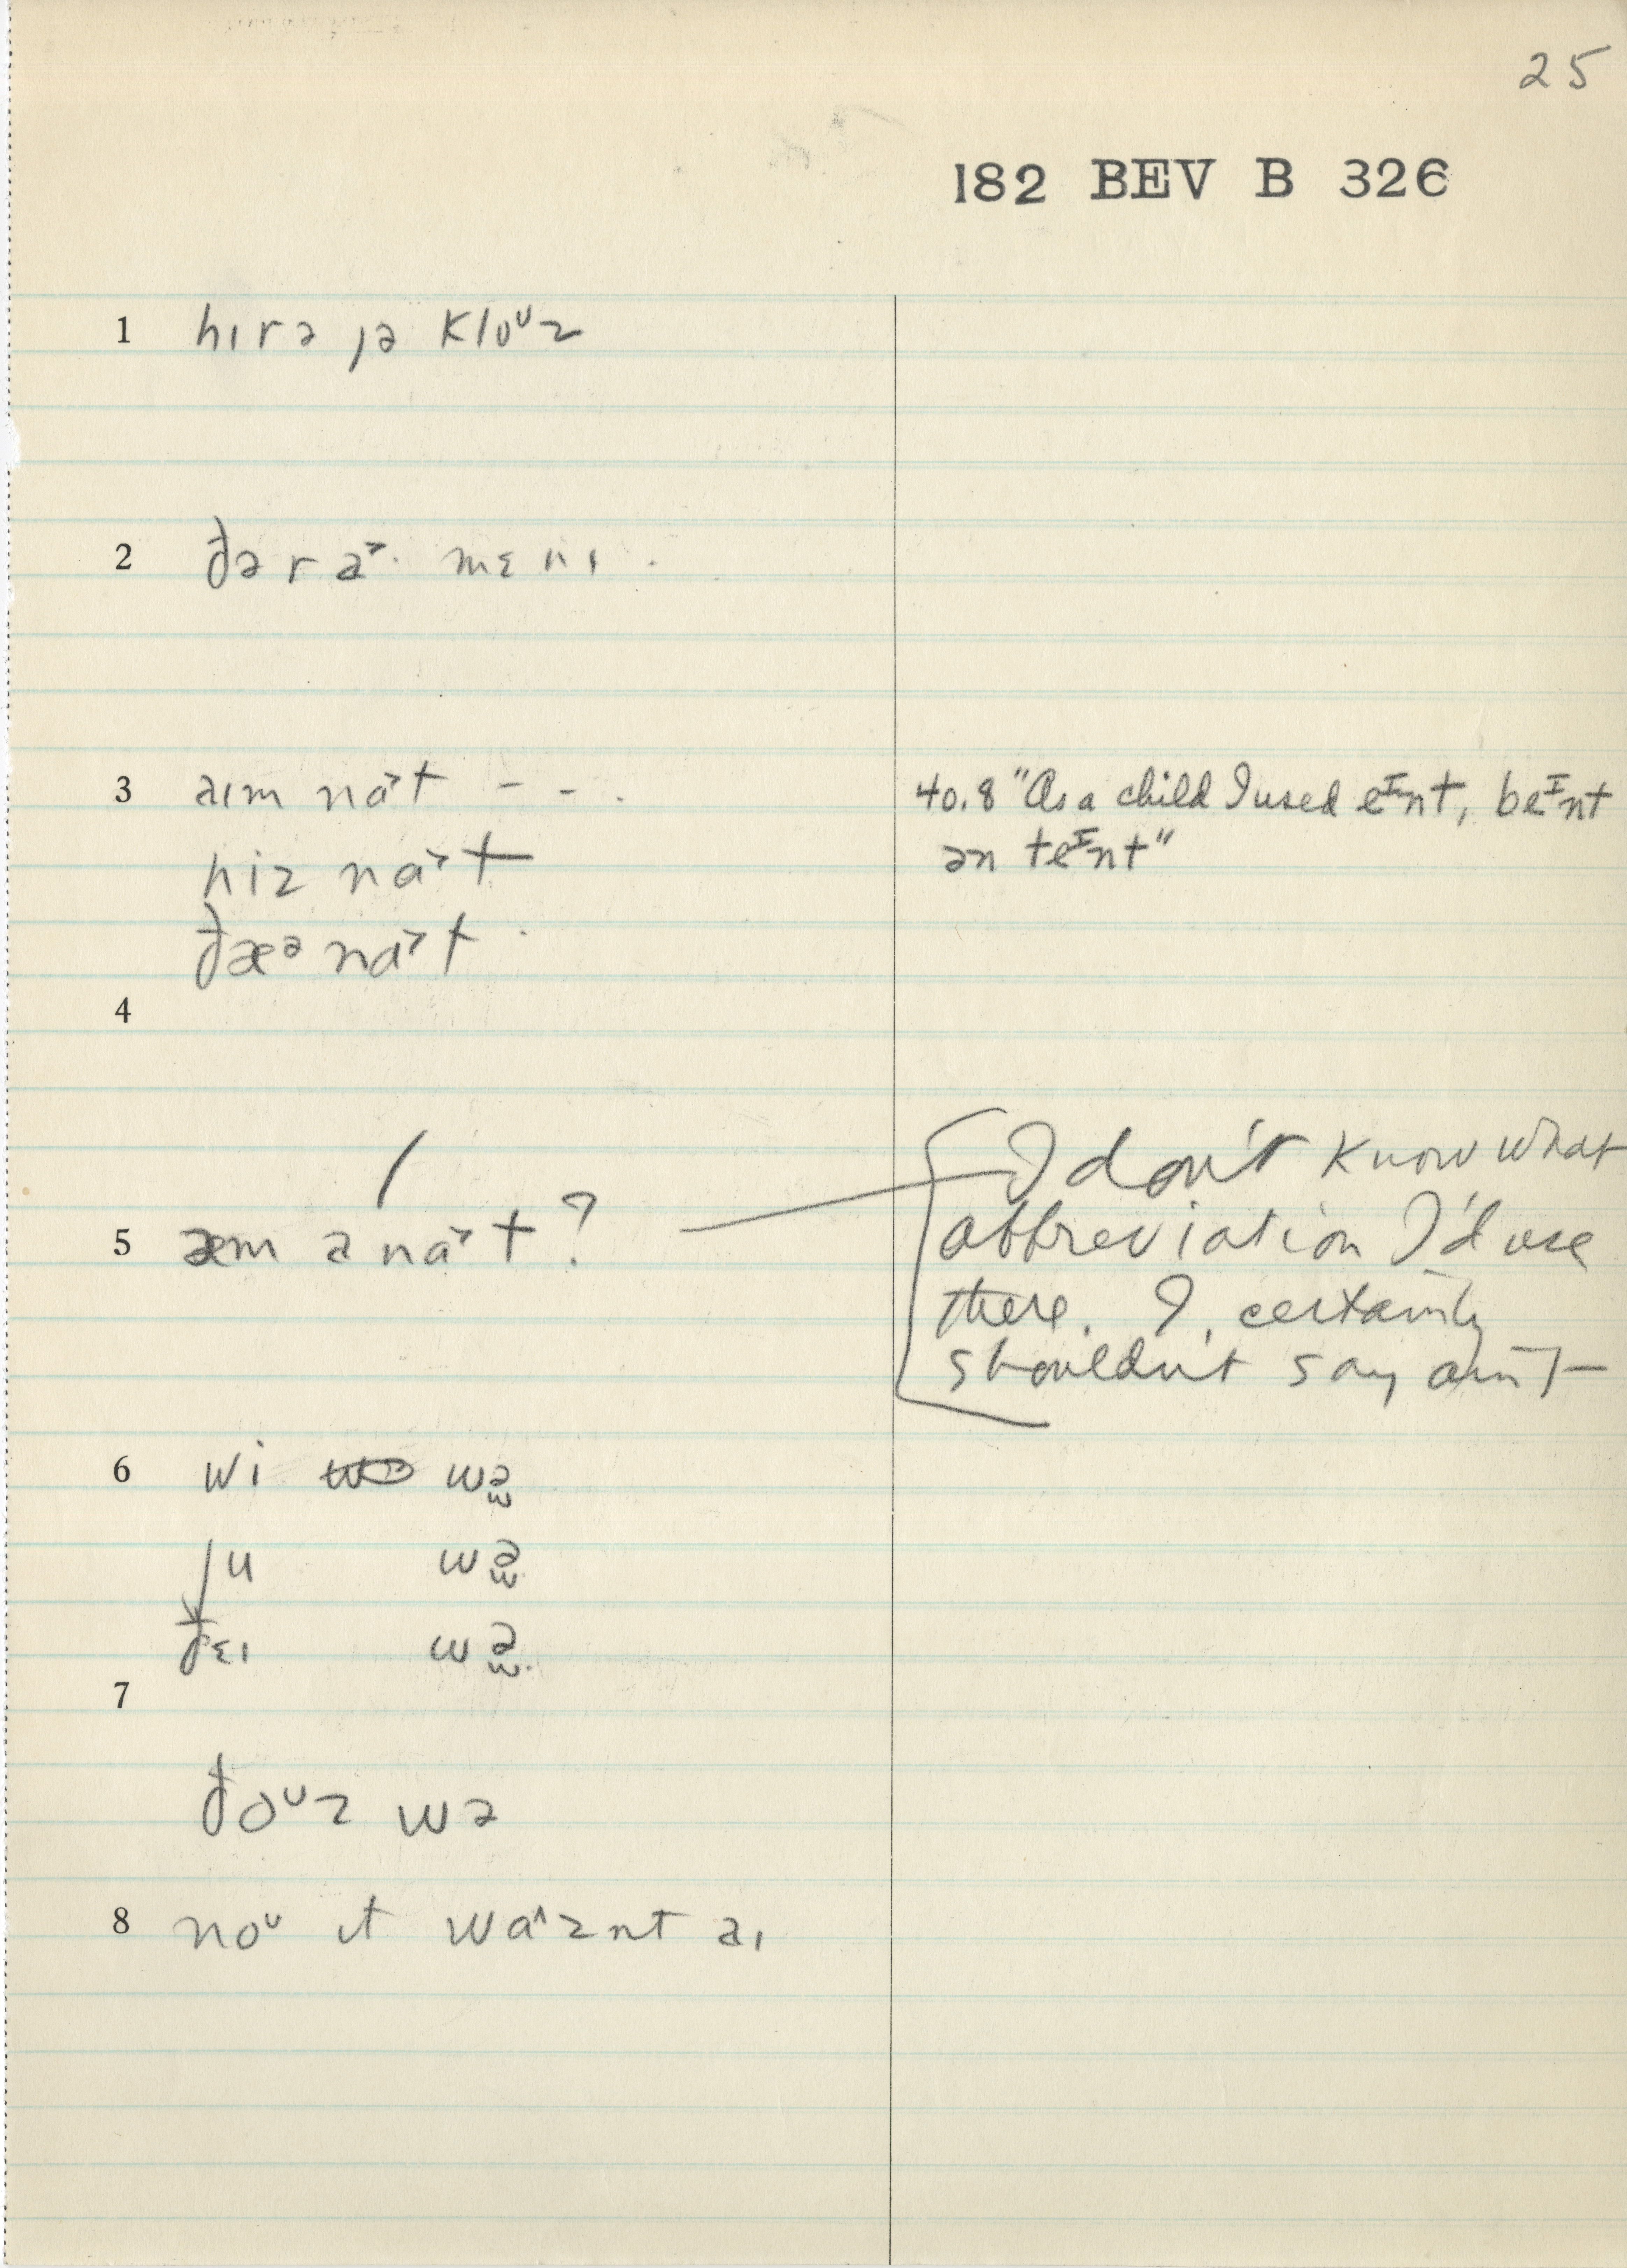 25
182 BEV B 326
1 hɪrə jə kloᶷz
2 ðərə˃· mɛnɪ .
3 aɪm na˃t - - .
hiz na˃t
ðæᵊ na˃t .
40.8 "As a child I used eᴵnt, beᴵnt
ən teᴵnt"
4
5 æm ə na˃t?
I don't know what
abbreviation I'd use
there. I, certainly
shouldn't say ain't
6 wi wə̫
ju wə̫
ðɛɪ wə̫.
7
ðoᶷz wə
8 noᶷ ɪt wa˄znt aɪ